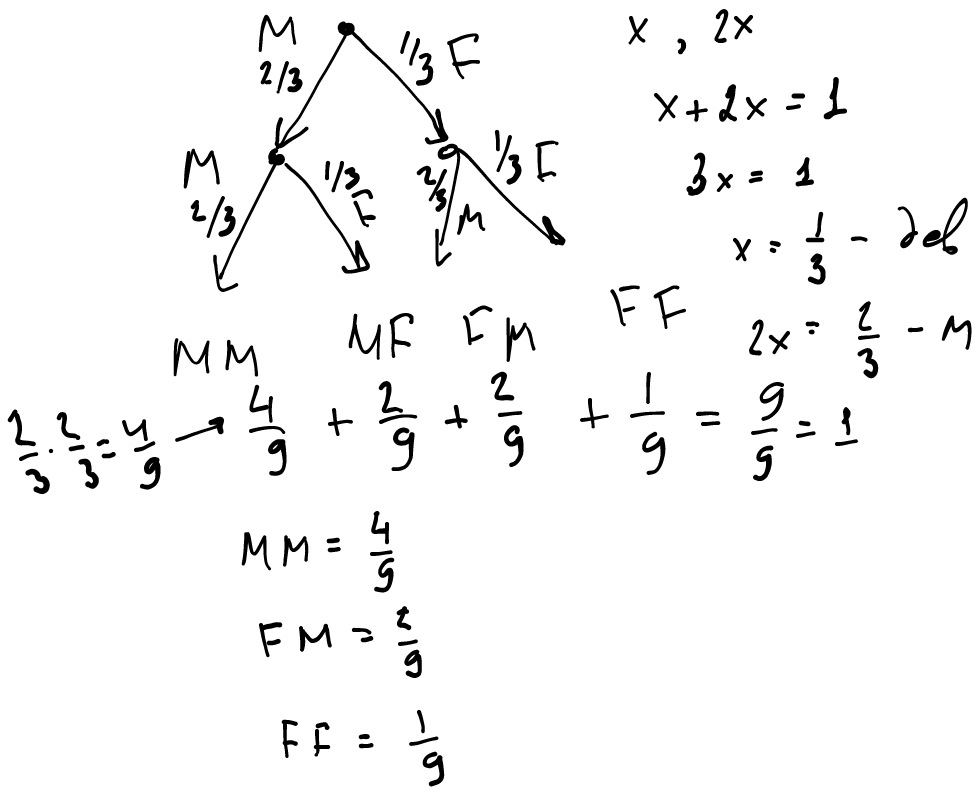 M 2/3 1/3 F
M 2/3 1/3 F 2/3 M 1/3 F
x , 2x
x + 2x = 1
3x = 1
x = 1/3 - дев
2x = 2/3 - м
MM MF FM FF
2/3 · 2/3 = 4/9 → 4/9 + 2/9 + 2/9 + 1/9 = 9/9 = 1
MM = 4/9
FM = 2/9
FF = 1/9